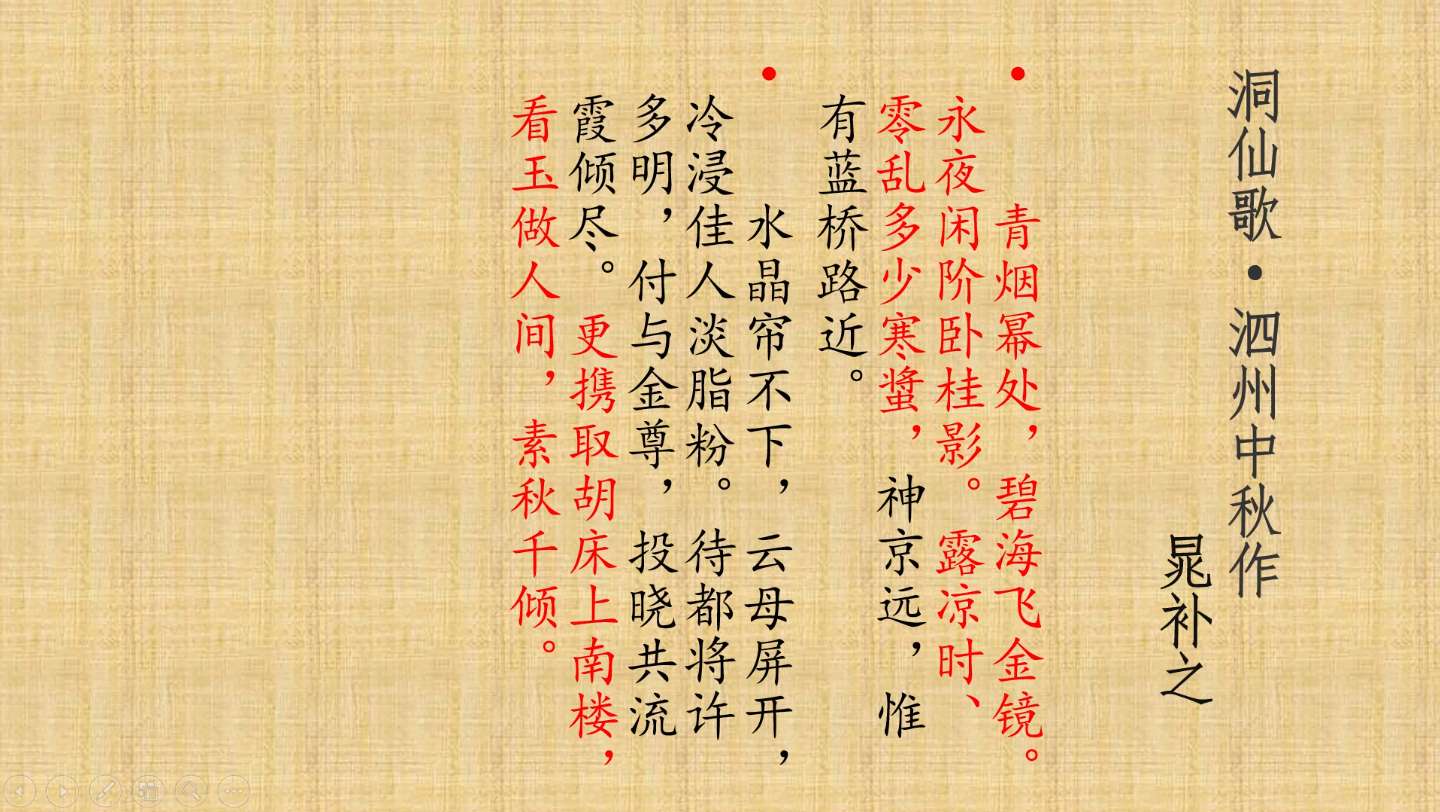 洞仙歌·泗州中秋作
晁补之
• 青烟幂处，碧海飞金镜。
永夜闲阶卧桂影。露凉时、
零乱多少寒螀，神京远，惟
有蓝桥路近。
• 水晶帘不下，云母屏开，
冷浸佳人淡脂粉。待都将许
多明，付与金尊，投晓共流
霞倾尽。更携取胡床上南楼，
看玉做人间，素秋千倾。